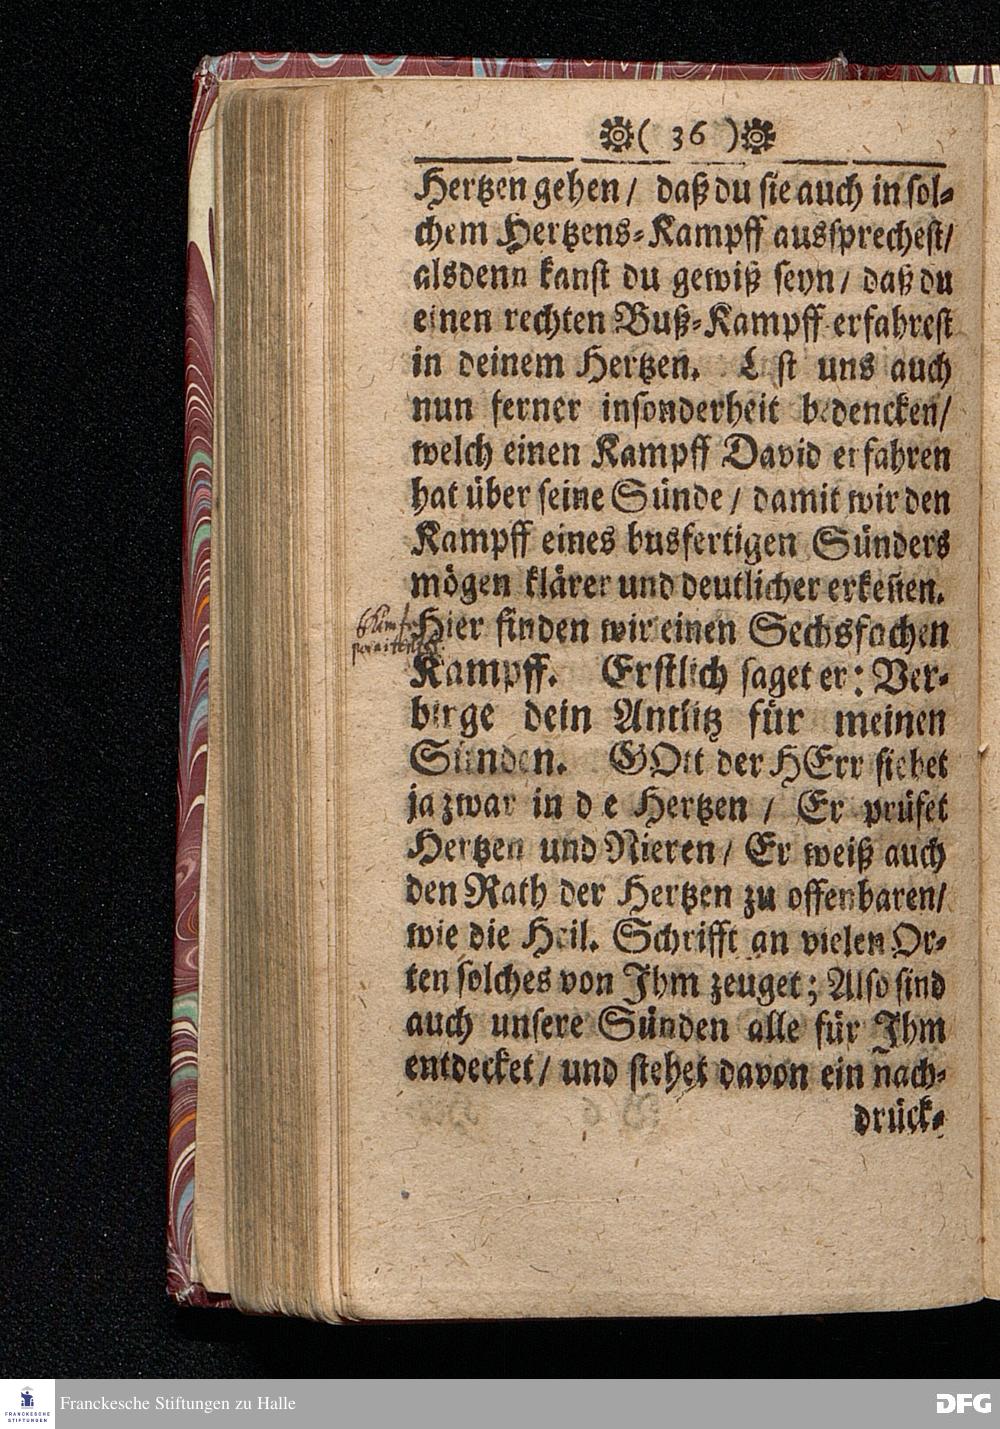 ( 36 )
Hertzen gehen / daß du sie auch in sol-
chem Hertzens-Kampff aussprechest/
alsdenn kanst du gewiß seyn / daß du
einen rechten Buß-Kampff erfahrest
in deinem Hertzen. L st uns auch
nun ferner insonderheit bedencken/
welch einen Kampff David erfahren
hat über seine Sünde / damit wir den
Kampff eines busfertigen Sünders
mögen klärer und deutlicher erkeñen.
Hier finden wir einen Sechsfachen
Kampff. Erstlich saget er: Ver-
birge dein Antlitz für meinen
Sünden. GOtt der HErr siehet
ja zwar in d e Hertzen / Er prüfet
Hertzen und Nieren / Er weiß auch
den Rath der Hertzen zu offenbaren/
wie die Heil. Schrifft an vielen Or-
ten solches von Ihm zeuget; Also sind
auch unsere Sünden alle für Ihm
entdecket / und stehet davon ein nach-
drück-
Franckesche Stiftungen zu Halle
FRANCKESCHE
STIFTUNGEN
DFG